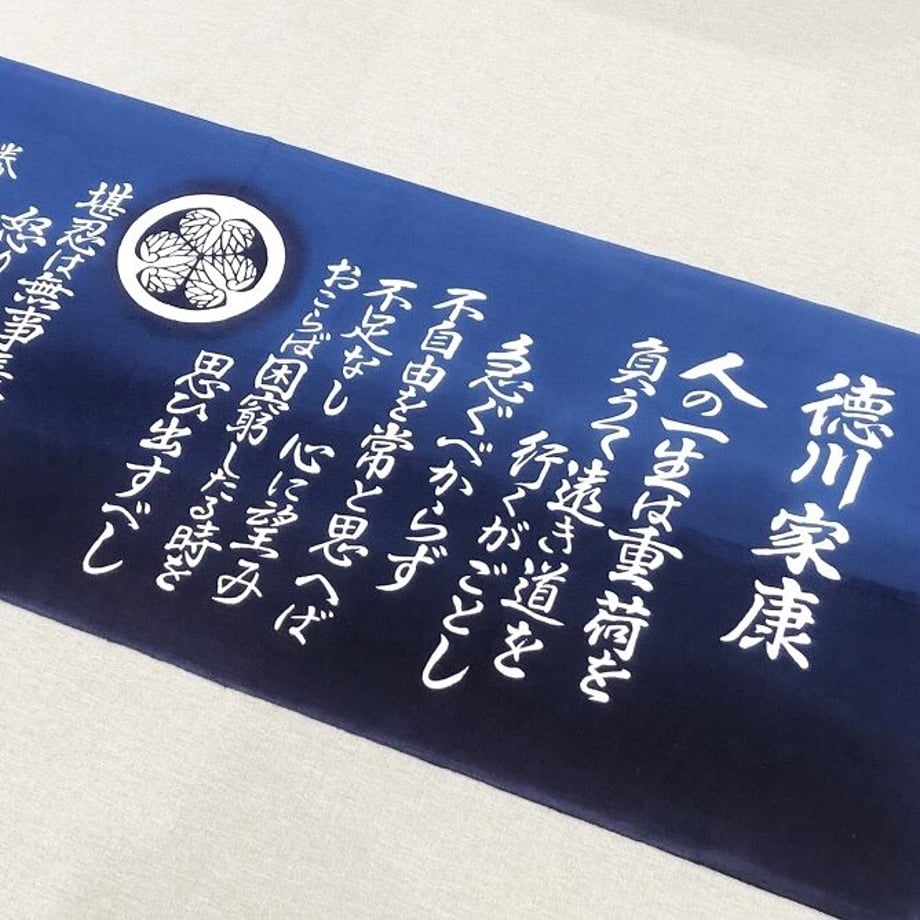 徳川家康
人の一生は重荷を
真うて遠き道を
行くがごとし
急ぐべからず
不自由を常と思へば
不足なし 心に望み
おこらば困窮したる時を
思ひ出すべし
堪忍は無事長
怒り